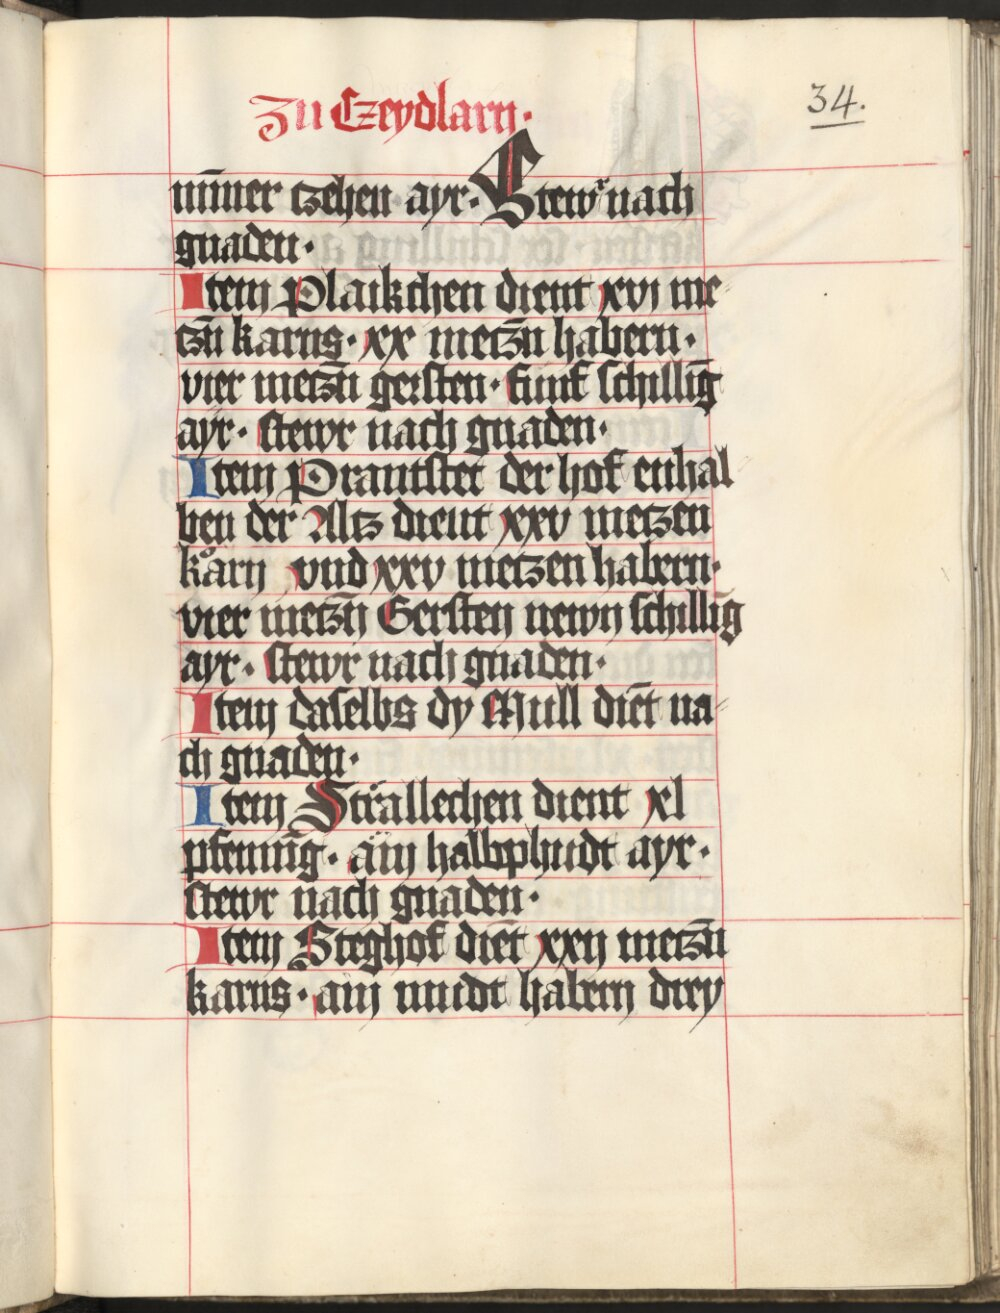 Zu Czeydlarn.
34.
nīmer tzehen ayr. Stewr nach
gnaden.
Item Plaikchen dient xvj me
tzn̄ karns. xx metzn̄ habern.
vier metzn̄ gersten. funf schillinḡ
ayr. stewr nach gnaden.
Item Prantstet der hof enhal
ben der Alltz dient xxv metzen
korn vnd xxv metzen habern.
vier metzn̄ Gersten newn schillinḡ
ayr. stewr nach gnaden.
Item daselbs dy Mull diēt na
ch gnaden.
Item Strallechen dient xl
pfennīg. ain halbphudt ayr.
stewr nach gnaden.
Item Steghof diēt xxij metzn̄
karns. ain mudt habern drey